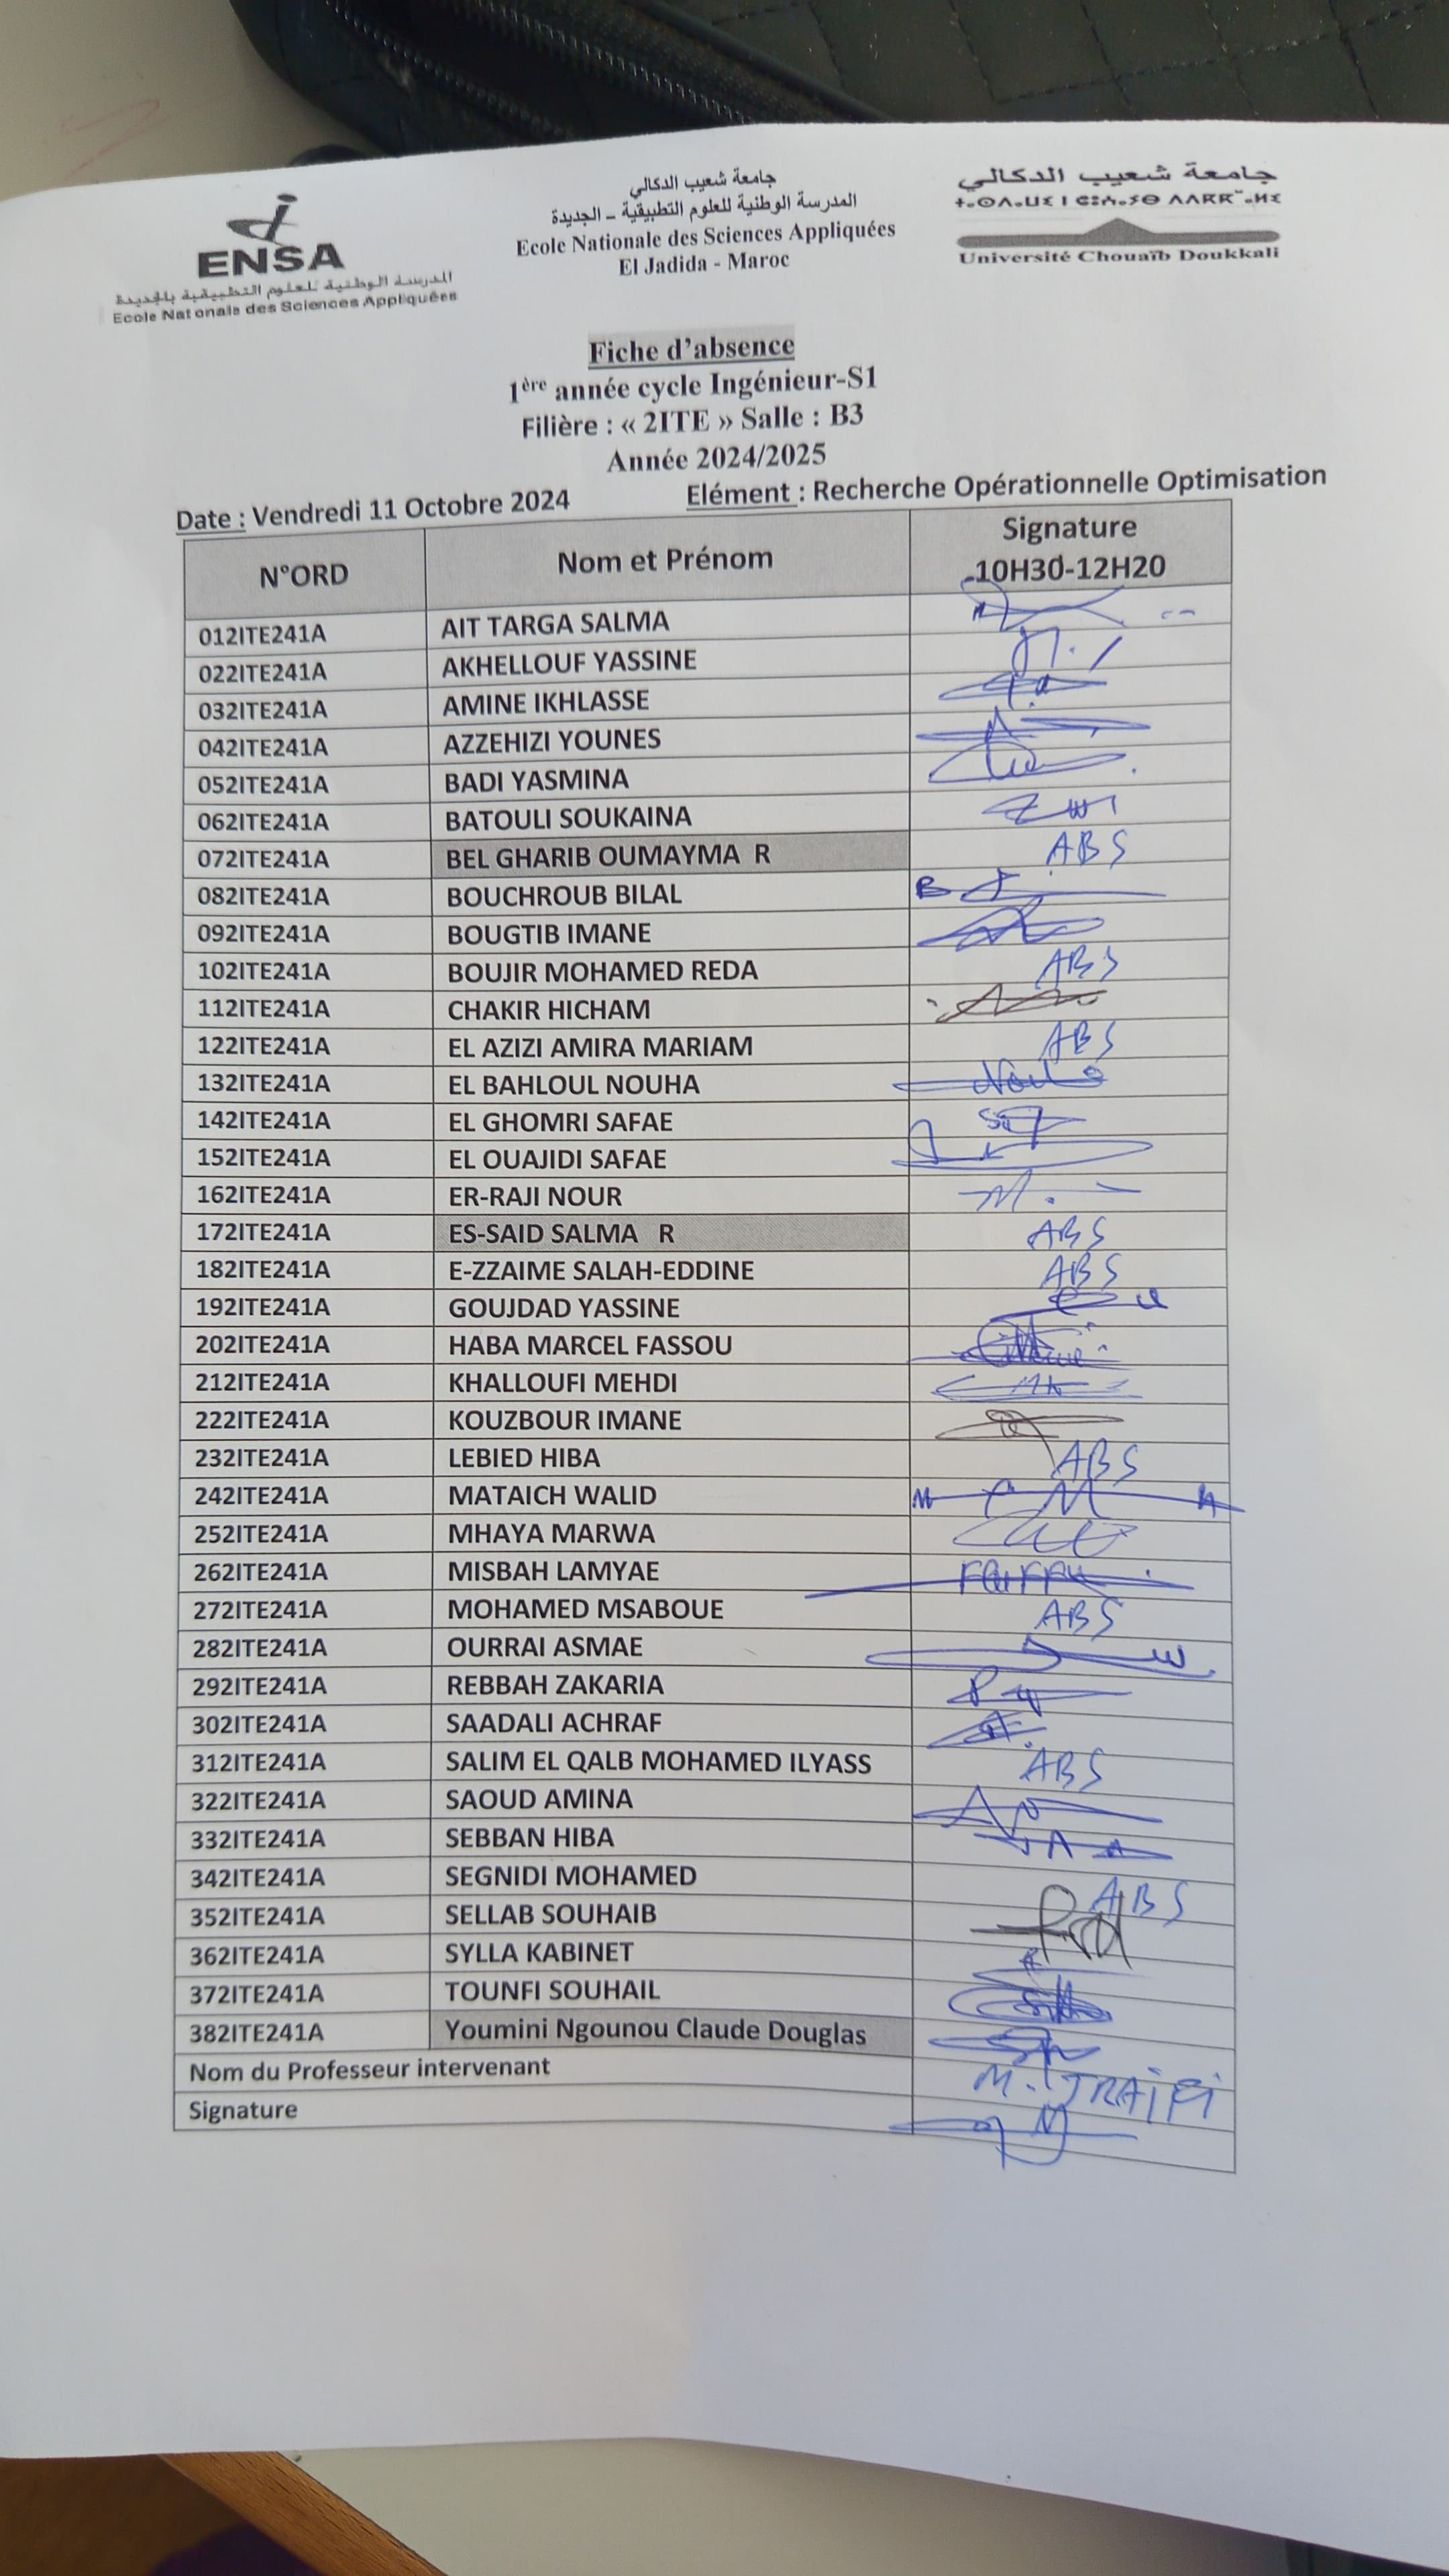 جامعة شعيب الدكالي
المدرسة الوطنية للعلوم التطبيقية – الجديدة
Ecole Nationale des Sciences Appliquées
El Jadida - Maroc
ENSA
المدرسة الوطنية للعلوم التطبيقية بالجديدة
Ecole Nat onale des Sciences Appliquées
جامعة شعيب الدكالي
Université Chouaïb Doukkali
Fiche d'absence
1ère année cycle Ingénieur-S1
Filière : « 2ITE » Salle : B3
Année 2024/2025
Date : Vendredi 11 Octobre 2024 Elément : Recherche Opérationnelle Optimisation
N°ORD Nom et Prénom Signature 10H30-12H20
012ITE241A AIT TARGA SALMA
022ITE241A AKHELLOUF YASSINE
032ITE241A AMINE IKHLASSE
042ITE241A AZZEHIZI YOUNES
052ITE241A BADI YASMINA
062ITE241A BATOULI SOUKAINA
072ITE241A BEL GHARIB OUMAYMA R ABS
082ITE241A BOUCHROUB BILAL
092ITE241A BOUGTIB IMANE
102ITE241A BOUJIR MOHAMED REDA ABS
112ITE241A CHAKIR HICHAM
122ITE241A EL AZIZI AMIRA MARIAM ABS
132ITE241A EL BAHLOUL NOUHA
142ITE241A EL GHOMRI SAFAE
152ITE241A EL OUAJIDI SAFAE
162ITE241A ER-RAJI NOUR
172ITE241A ES-SAID SALMA R ABS
182ITE241A E-ZZAIME SALAH-EDDINE ABS
192ITE241A GOUJDAD YASSINE
202ITE241A HABA MARCEL FASSOU
212ITE241A KHALLOUFI MEHDI
222ITE241A KOUZBOUR IMANE
232ITE241A LEBIED HIBA ABS
242ITE241A MATAICH WALID
252ITE241A MHAYA MARWA
262ITE241A MISBAH LAMYAE
272ITE241A MOHAMED MSABOUE ABS
282ITE241A OURRAI ASMAE
292ITE241A REBBAH ZAKARIA
302ITE241A SAADALI ACHRAF
312ITE241A SALIM EL QALB MOHAMED ILYASS ABS
322ITE241A SAOUD AMINA
332ITE241A SEBBAN HIBA
342ITE241A SEGNIDI MOHAMED ABS
352ITE241A SELLAB SOUHAIB
362ITE241A SYLLA KABINET
372ITE241A TOUNFI SOUHAIL
382ITE241A Youmini Ngounou Claude Douglas
Nom du Professeur intervenant
Signature